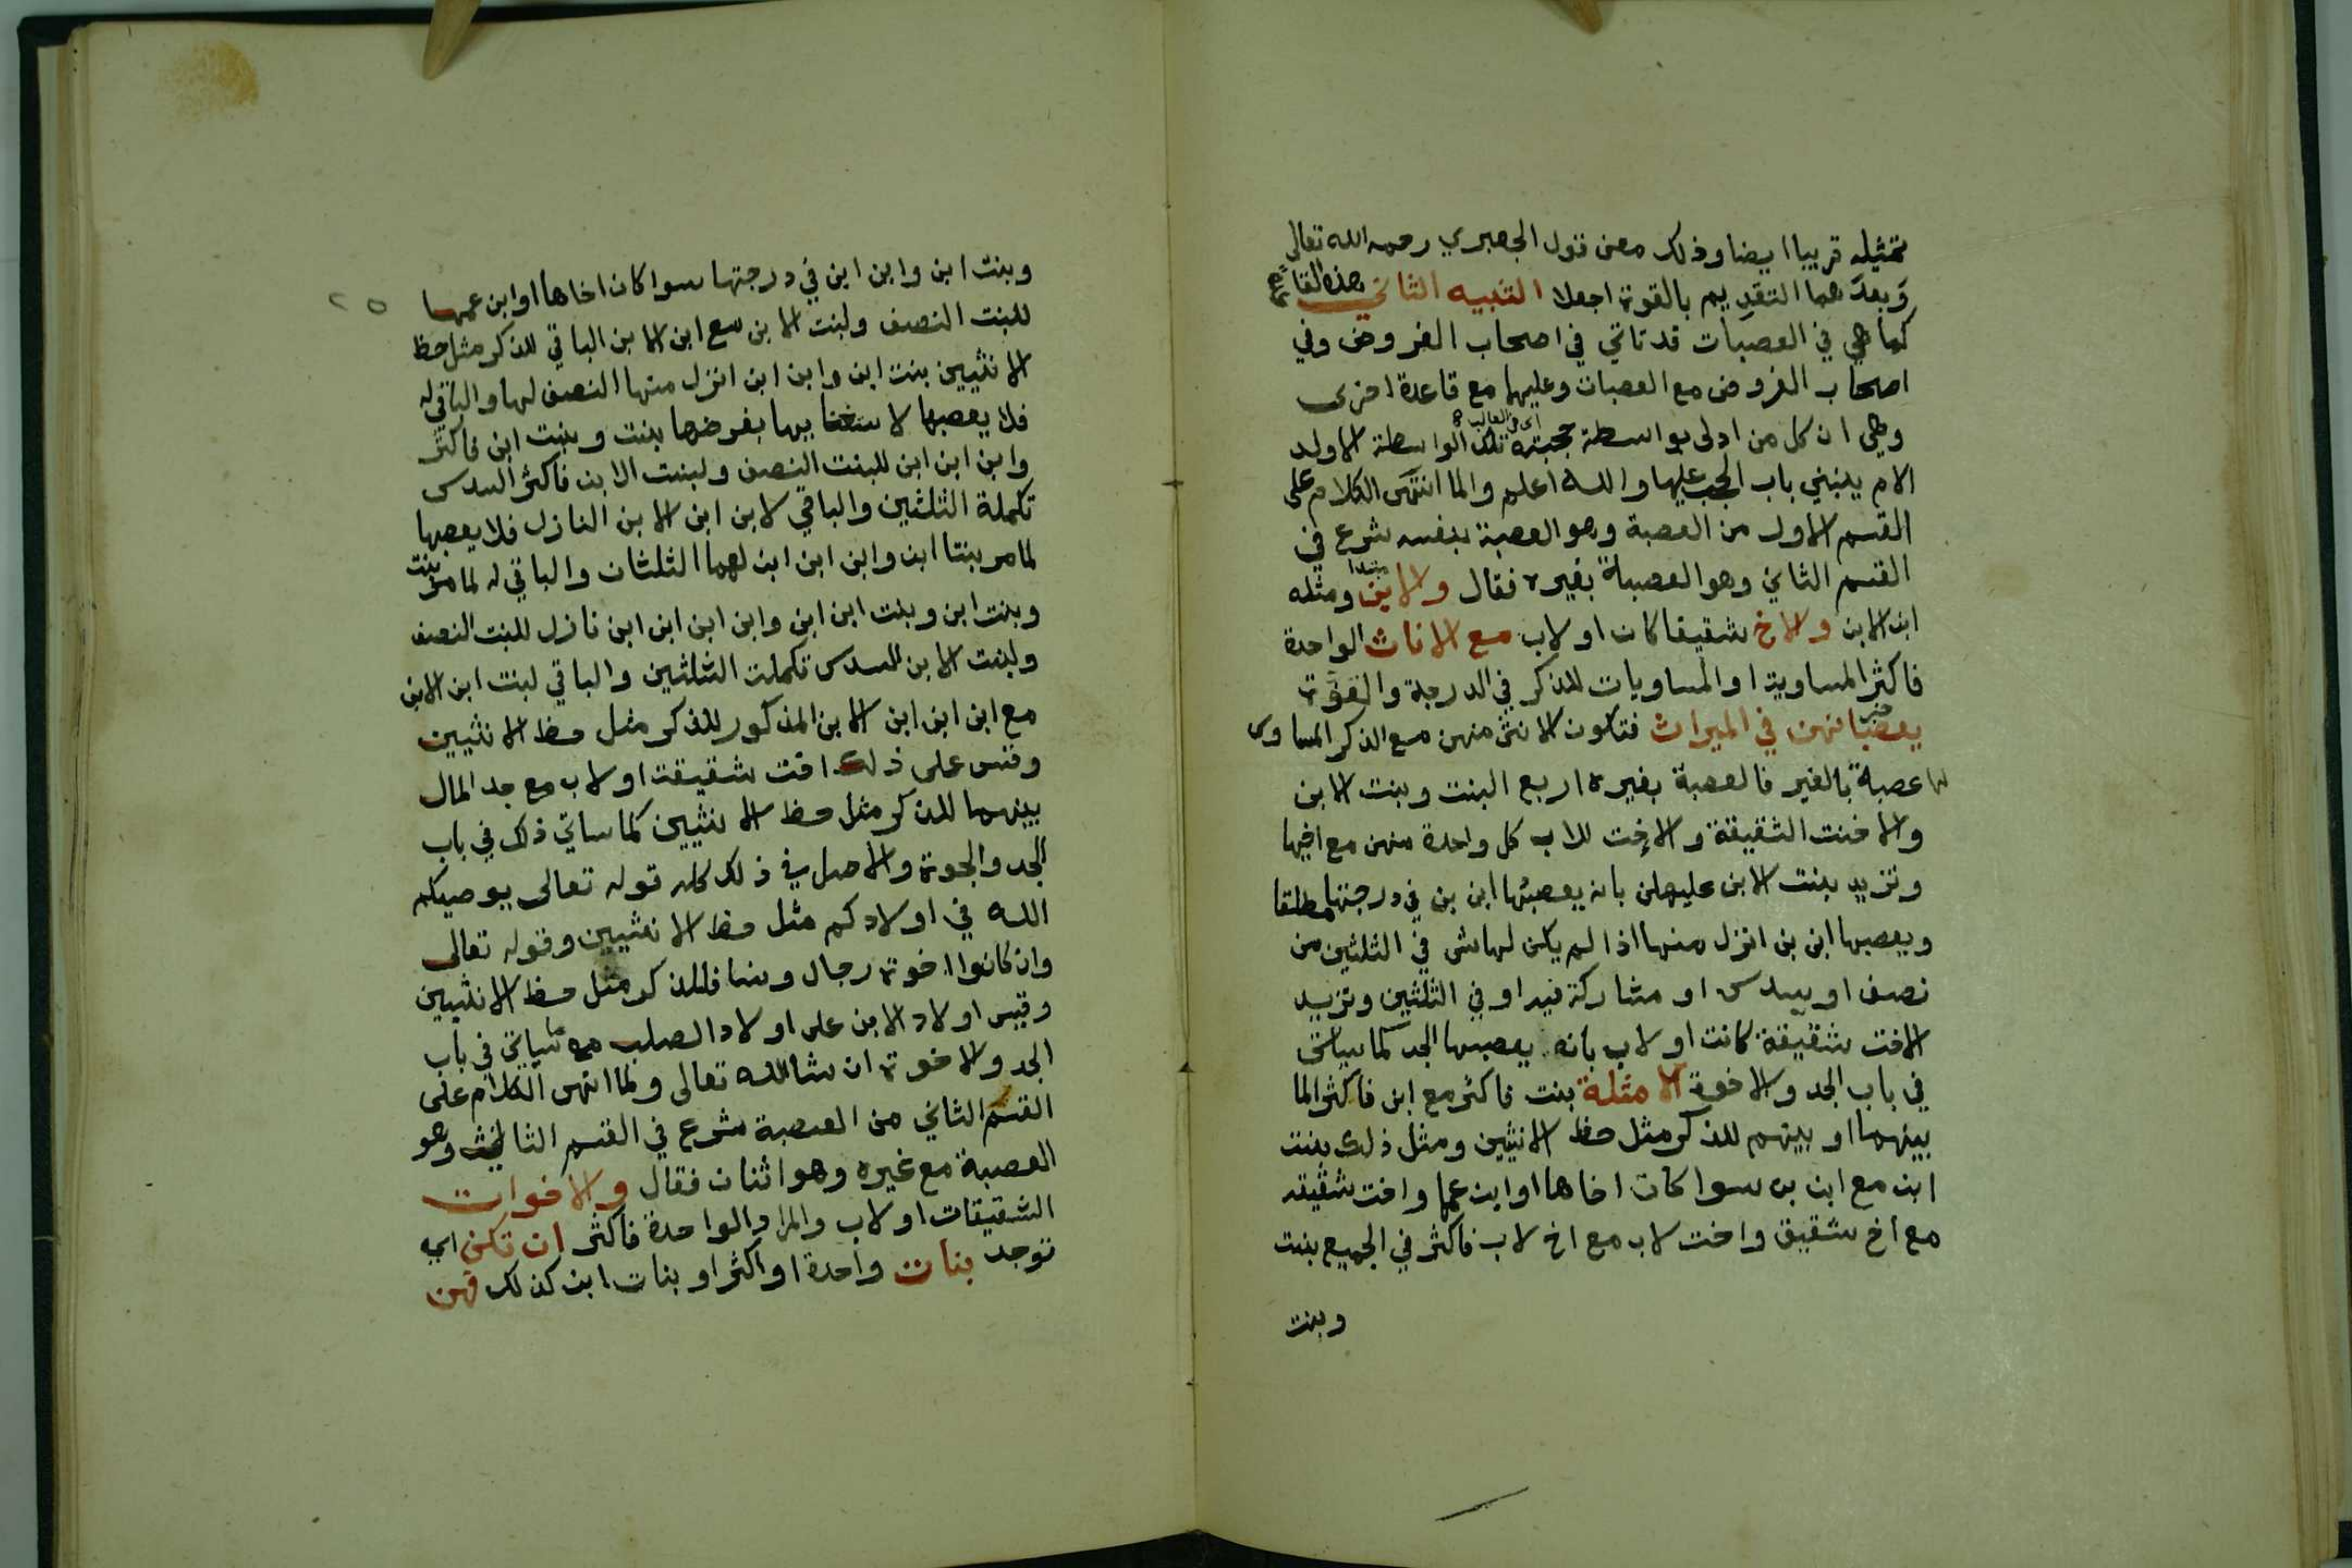 تمثيله قريبا ايضا وذلك معنى قول الجعبري رحمه الله تعالى
وبعدهما التقديم بالقوة اجعلا التنبيه الثاني هذه القاعدة
كما هي في العصبات قد تاتي في اصحاب الفروض وفي
اصحاب الفروض مع العصبات وعليها مع قاعدة اخرى
اى في الغالب
وهي ان كل من ادلى بواسطة حجبته تلك الواسطة الا ولد
الام ينبني باب الحجب عليها والله اعلم ولما انتهى الكلام على
القسم الاول من العصبة وهو العصبة بنفسه شرع في
القسم الثاني وهو العصبة بغيره فقال والابن ومثله
مبتدا
ابن الابن والاخ شقيقا كان او لاب مع الاناث الواحدة
فاكثر المساوية او المساويات للذكر في الدرجة والقوة
خبر
يعصبانهن في الميراث فتكون الانثى منهن مع الذكر المساوى
لها عصبة بالغير فالعصبة بغيره اربع البنت وبنت الابن
والاخت الشقيقة والاخت للاب كل واحدة منهن مع اخيها
وتزيد بنت الابن عليهن بانه يعصبها ابن بن في درجتها مطلقا
ويعصبها ابن بن انزل منها اذا لم يكن لها شى في الثلثين من
نصف او سدس او مشاركة فيه او في الثلثين وتزيد
الاخت شقيقة كانت او لاب بانه يعصبها الجد كما سياتى
في باب الجد والاخوة الامثلة بنت فاكثر مع ابن فاكثر المال
بينهما او بينهم للذكر مثل حظ الانثيين ومثل ذلك بنت
ابن مع ابن بن سوا كان اخاها او ابن عمها واخت شقيقه
مع اخ شقيق واخت لاب مع اخ لاب فاكثر في الجميع بنت
وبنت
٢٥
وبنت ابن وابن ابن في درجتها سوا كان اخاها او ابن عمها
للبنت النصف ولبنت الابن مع ابن الابن الباقي للذكر مثل حظ
الانثيين بنت ابن وابن ابن انزل منها النصف لها والباقي له
فلا يعصبها لاستغنايها بفرضها بنت وبنت ابن فاكثر
وابن ابن ابن للبنت النصف ولبنت الابن فاكثر السدس
تكملة الثلثين والباقي لابن ابن الابن النازل فلا يعصبها
لما مر بنتا ابن وابن ابن ابن لهما الثلثان والباقي له لما مر بنت
وبنت ابن وبنت ابن ابن وابن ابن ابن ابن نازل للبنت النصف
ولبنت الابن السدس تكملة الثلثين والباقي لبنت ابن الابن
مع ابن ابن ابن الابن المذكور للذكر مثل حظ الانثيين
وقس على ذلك اخت شقيقة او لاب مع جد المال
بينهما للذكر مثل حظ الانثيين كما ساتي ذلك في باب
الجد والاخوة والاصل في ذلك كله قوله تعالى يوصيكم
الله في اولادكم مثل حظ الانثيين وقوله تعالى
وان كانوا اخوة رجال ونسا فللذكر مثل حظ الانثيين
وقيس اولاد الابن على اولاد الصلب مع ما سياتي في باب
الجد والاخوة ان شا الله تعالى ولما انتهى الكلام على
القسم الثاني من العصبة شرع في القسم الثالث وهو
العصبة مع غيره وهو اثنان فقال والاخوات
الشقيقات او لاب والمراد الواحدة فاكثر ان تكن اي
توجد بنات واحدة او اكثر او بنات ابن كذلك فهن